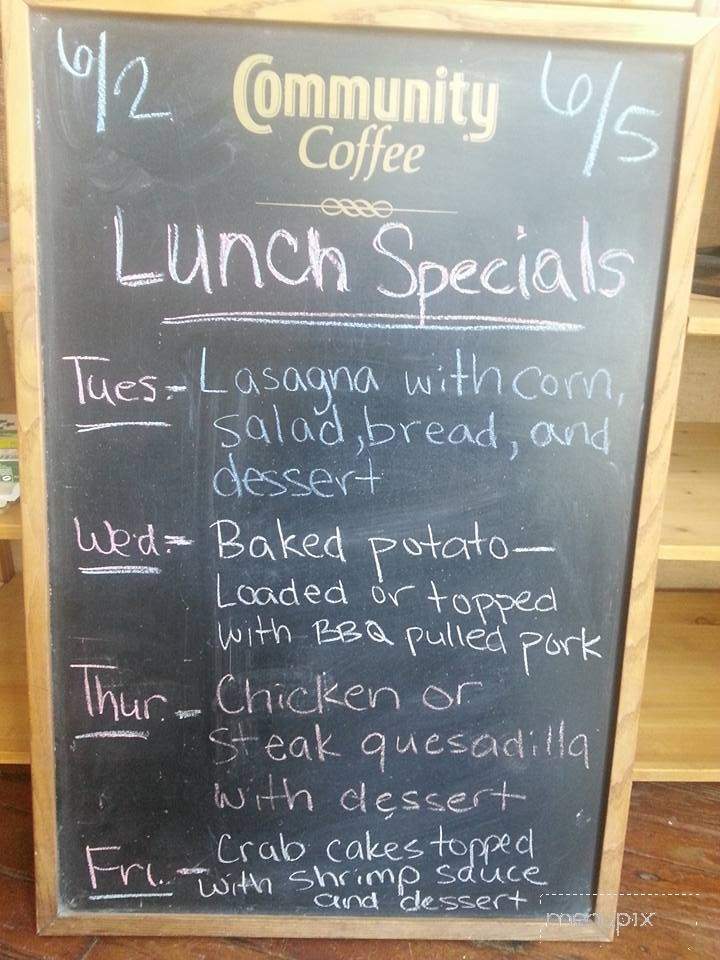 6/2
Community
Coffee
6/5
Lunch Specials
Tues.- Lasagna with corn,
salad, bread, and
dessert
Wed.- Baked potato—
Loaded or topped
with BBQ pulled pork
Thur.- Chicken or
steak quesadilla
with dessert
Fri.- Crab cakes topped
with shrimp sauce
and dessert
menupix